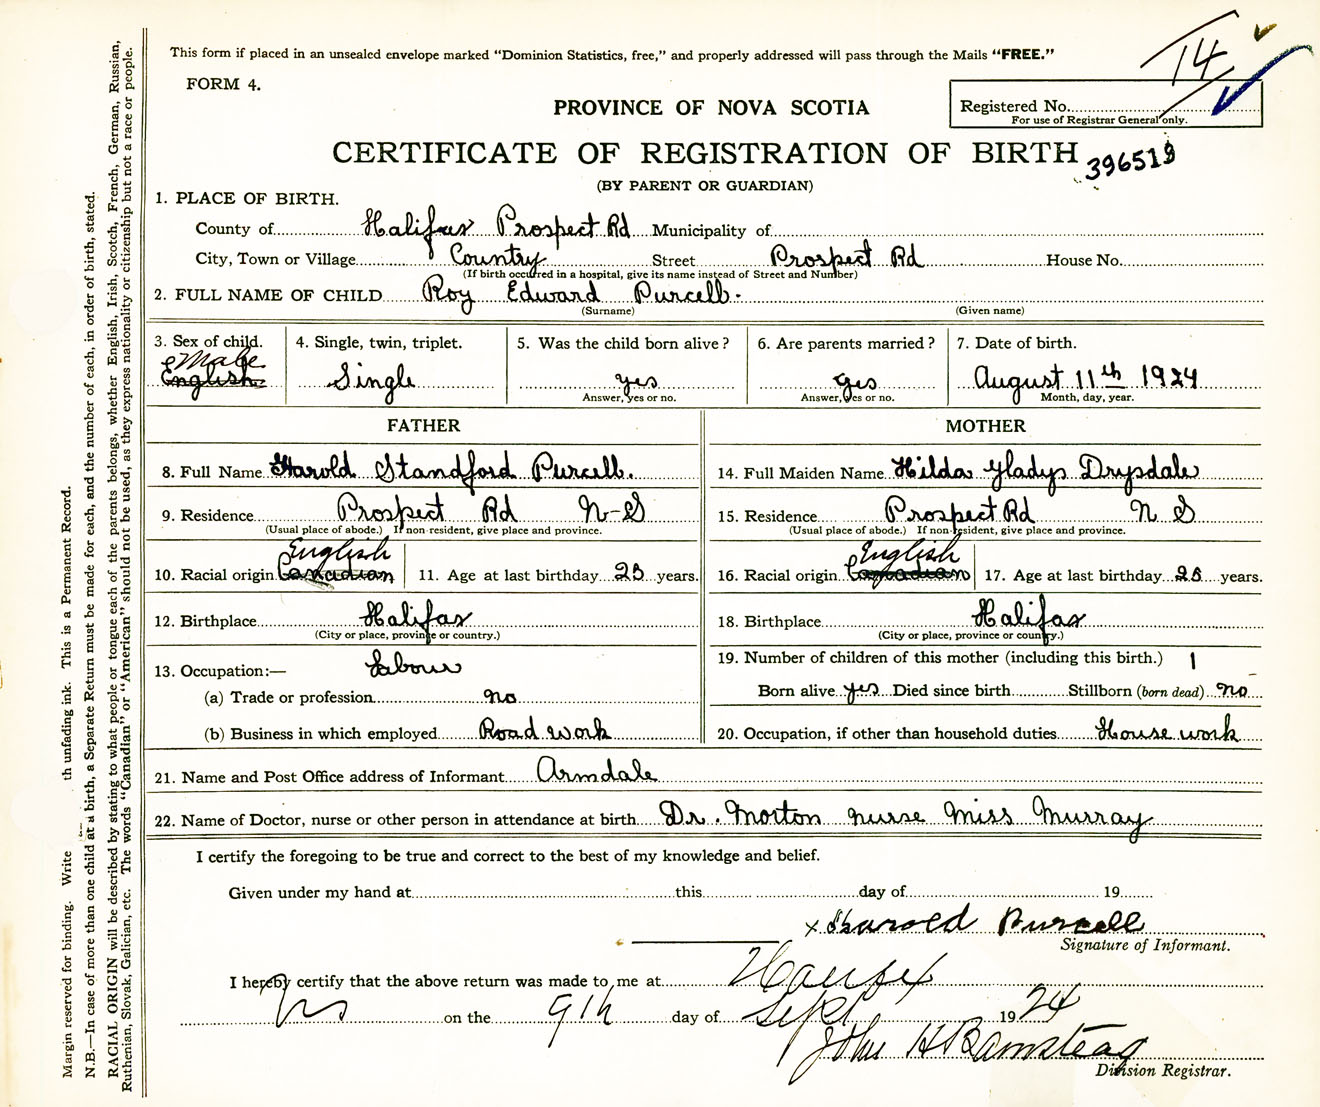 This form if placed in an unsealed envelope marked "Dominion Statistics, free," and properly addressed will pass through the Mails "FREE."
14
FORM 4.
PROVINCE OF NOVA SCOTIA
Registered No.
For use of Registrar General only.
CERTIFICATE OF REGISTRATION OF BIRTH
396519
(BY PARENT OR GUARDIAN)
1. PLACE OF BIRTH.
County of Halifax Prospect Rd Municipality of
City, Town or Village Country Street Prospect Rd House No.
(If birth occurred in a hospital, give its name instead of Street and Number)
2. FULL NAME OF CHILD Roy Edward Purcell.
(Surname) (Given name)
3. Sex of child. 4. Single, twin, triplet. 5. Was the child born alive? 6. Are parents married? 7. Date of birth.
Male
English Single yes yes August 11th 1924
Answer, yes or no. Answer, yes or no. Month, day, year.
FATHER MOTHER
8. Full Name Harold Standford Purcell. 14. Full Maiden Name Hilda Gladys Drysdale
9. Residence Prospect Rd N-S 15. Residence Prospect Rd N S
(Usual place of abode.) If non-resident, give place and province. (Usual place of abode.) If non-resident, give place and province.
English English
10. Racial origin Canadian 11. Age at last birthday 23 years. 16. Racial origin Canadian 17. Age at last birthday 25 years.
12. Birthplace Halifax 18. Birthplace Halifax
(City or place, province or country.) (City or place, province or country.)
13. Occupation:— Labour 19. Number of children of this mother (including this birth.) 1
(a) Trade or profession no Born alive yes Died since birth Stillborn (born dead) no
(b) Business in which employed Road work 20. Occupation, if other than household duties House work
21. Name and Post Office address of Informant Armdale
22. Name of Doctor, nurse or other person in attendance at birth Dr. Morton nurse Miss Murray
I certify the foregoing to be true and correct to the best of my knowledge and belief.
Given under my hand at this day of 19
x Harold Purcell
Signature of Informant.
I hereby certify that the above return was made to me at Halifax
NS on the 9th day of Sept 1924
John H Barnstead
Division Registrar.
Margin reserved for binding. Write th unfading ink. This is a Permanent Record.
N.B.—In case of more than one child at a birth, a Separate Return must be made for each, and the number of each, in order of birth, stated.
RACIAL ORIGIN will be described by stating to what people or tongue each of the parents belongs, whether English, Irish, Scotch, French, German, Russian,
Ruthenian, Slovak, Galician, etc. The words "Canadian" or "American" should not be used, as they express nationality or citizenship but not a race or people.